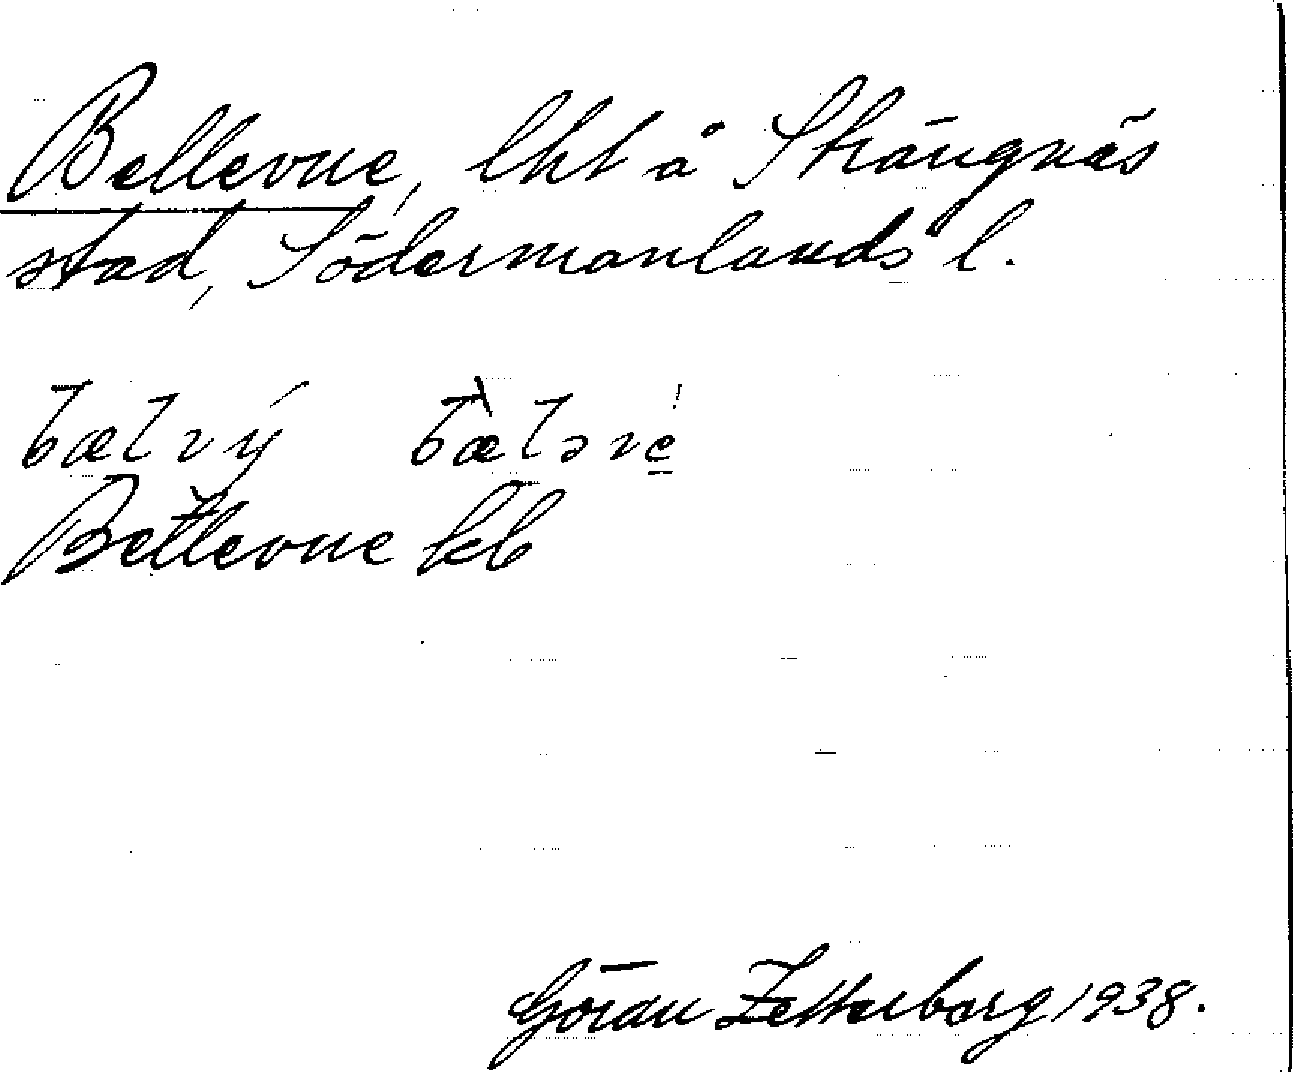 Bellevue, lht å Strängnäs
stad, Södermanlands l.
bælvý bæ̀ləve̱
Bellevue kb
Göran Zetterborg 1938.